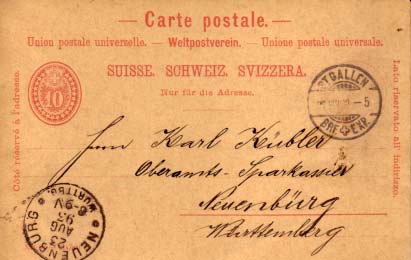 — Carte postale. —
Union postale universelle. — Weltpostverein. — Unione postale universale.
SUISSE. SCHWEIZ. SVIZZERA.
Nur für die Adresse.
Côté réservé à l'adresse.
Lato riservato all' indirizzo.
10
ST GALLEN
– 5
BRF. EXP.
Herrn Karl Kübler
Oberamts-Sparkassier
Neuenbürg
Württemberg
NEUENBÜRG
WÜRTTBG
23
AUG
93
8-9V